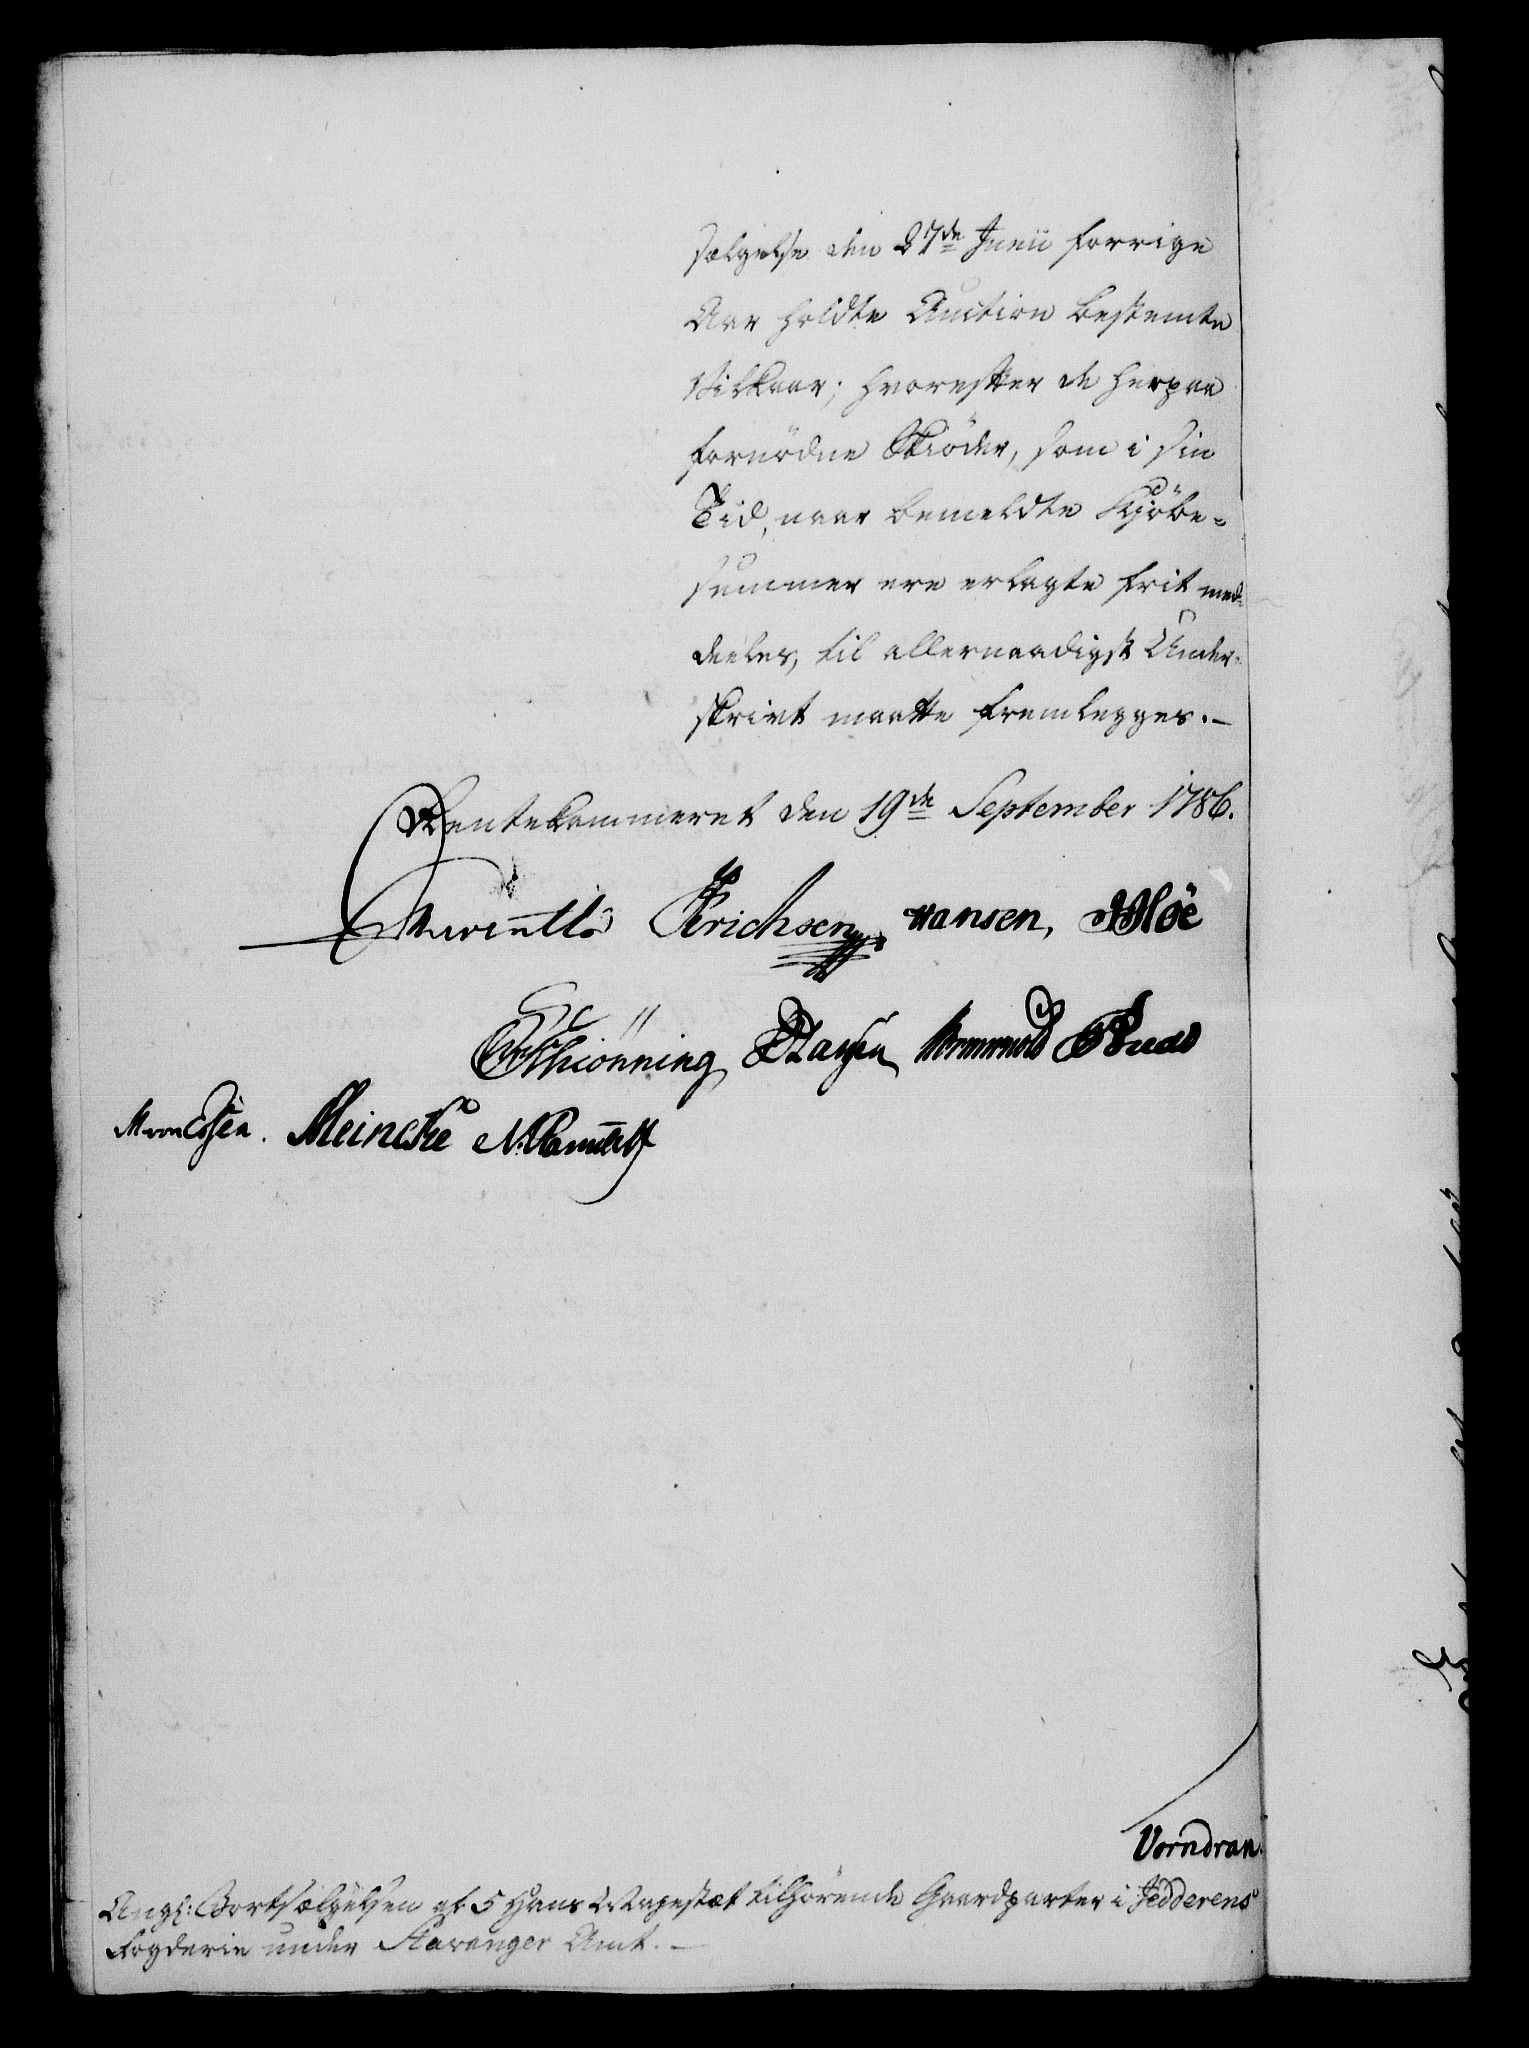 sælgelse den 27de Junii forrige
Aar holdte Auction bestemte
Vilkaar; hvorefter de herpaa
fornödne Skiöder, som i sin
Tid, naar bemeldte Kjöbe-
summer ere erlagte frit med-
deeles, til allernaadigst Under-
skrivt maatte fremlegges.
Rentekammeret den 19de September 1786.
Reventlo Erichsen Hansen,
Schiönning
Meincke
Vorndran.
Angl: Bortsælgelsen af 5 Hans Majestæt tilhörende Gaardparter i Jedderens
Fogderie under Stavanger Amt.